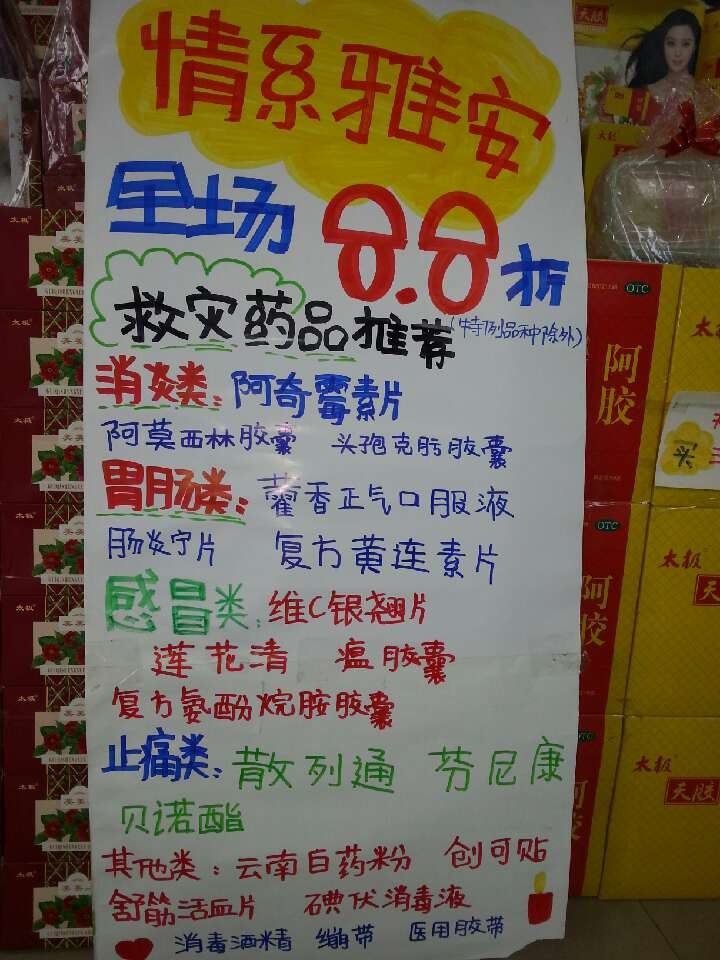 情系雅安
全场 8.8 折
救灾药品推荐(特例品种除外)
消炎类:阿奇霉素片
阿莫西林胶囊 头孢克肟胶囊
胃肠类:藿香正气口服液
肠炎宁片 复方黄连素片
感冒类:维C银翘片
莲花清 瘟胶囊
复方氨酚烷胺胶囊
止痛类:散列通 芬尼康
贝诺酯
其他类:云南白药粉 创可贴
舒筋活血片 碘伏消毒液
消毒酒精 绷带 医用胶带
天胶
OTC
阿胶
太极
买
OTC
阿胶
太极
OTC
太极
天胶
太极
太极
太极
太极
太极
太极